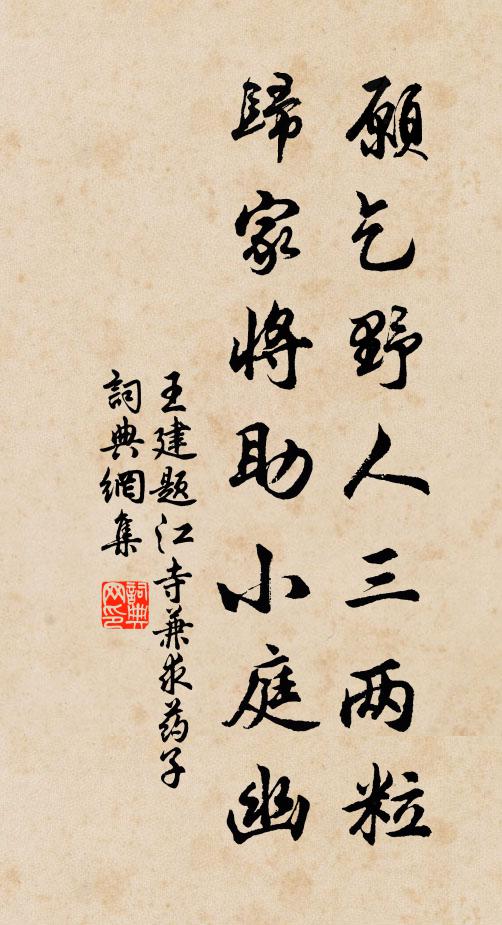 願乞野人三两粒
歸家將助小庭幽
王建题江寺兼求药子
詞典網集
詞典网印